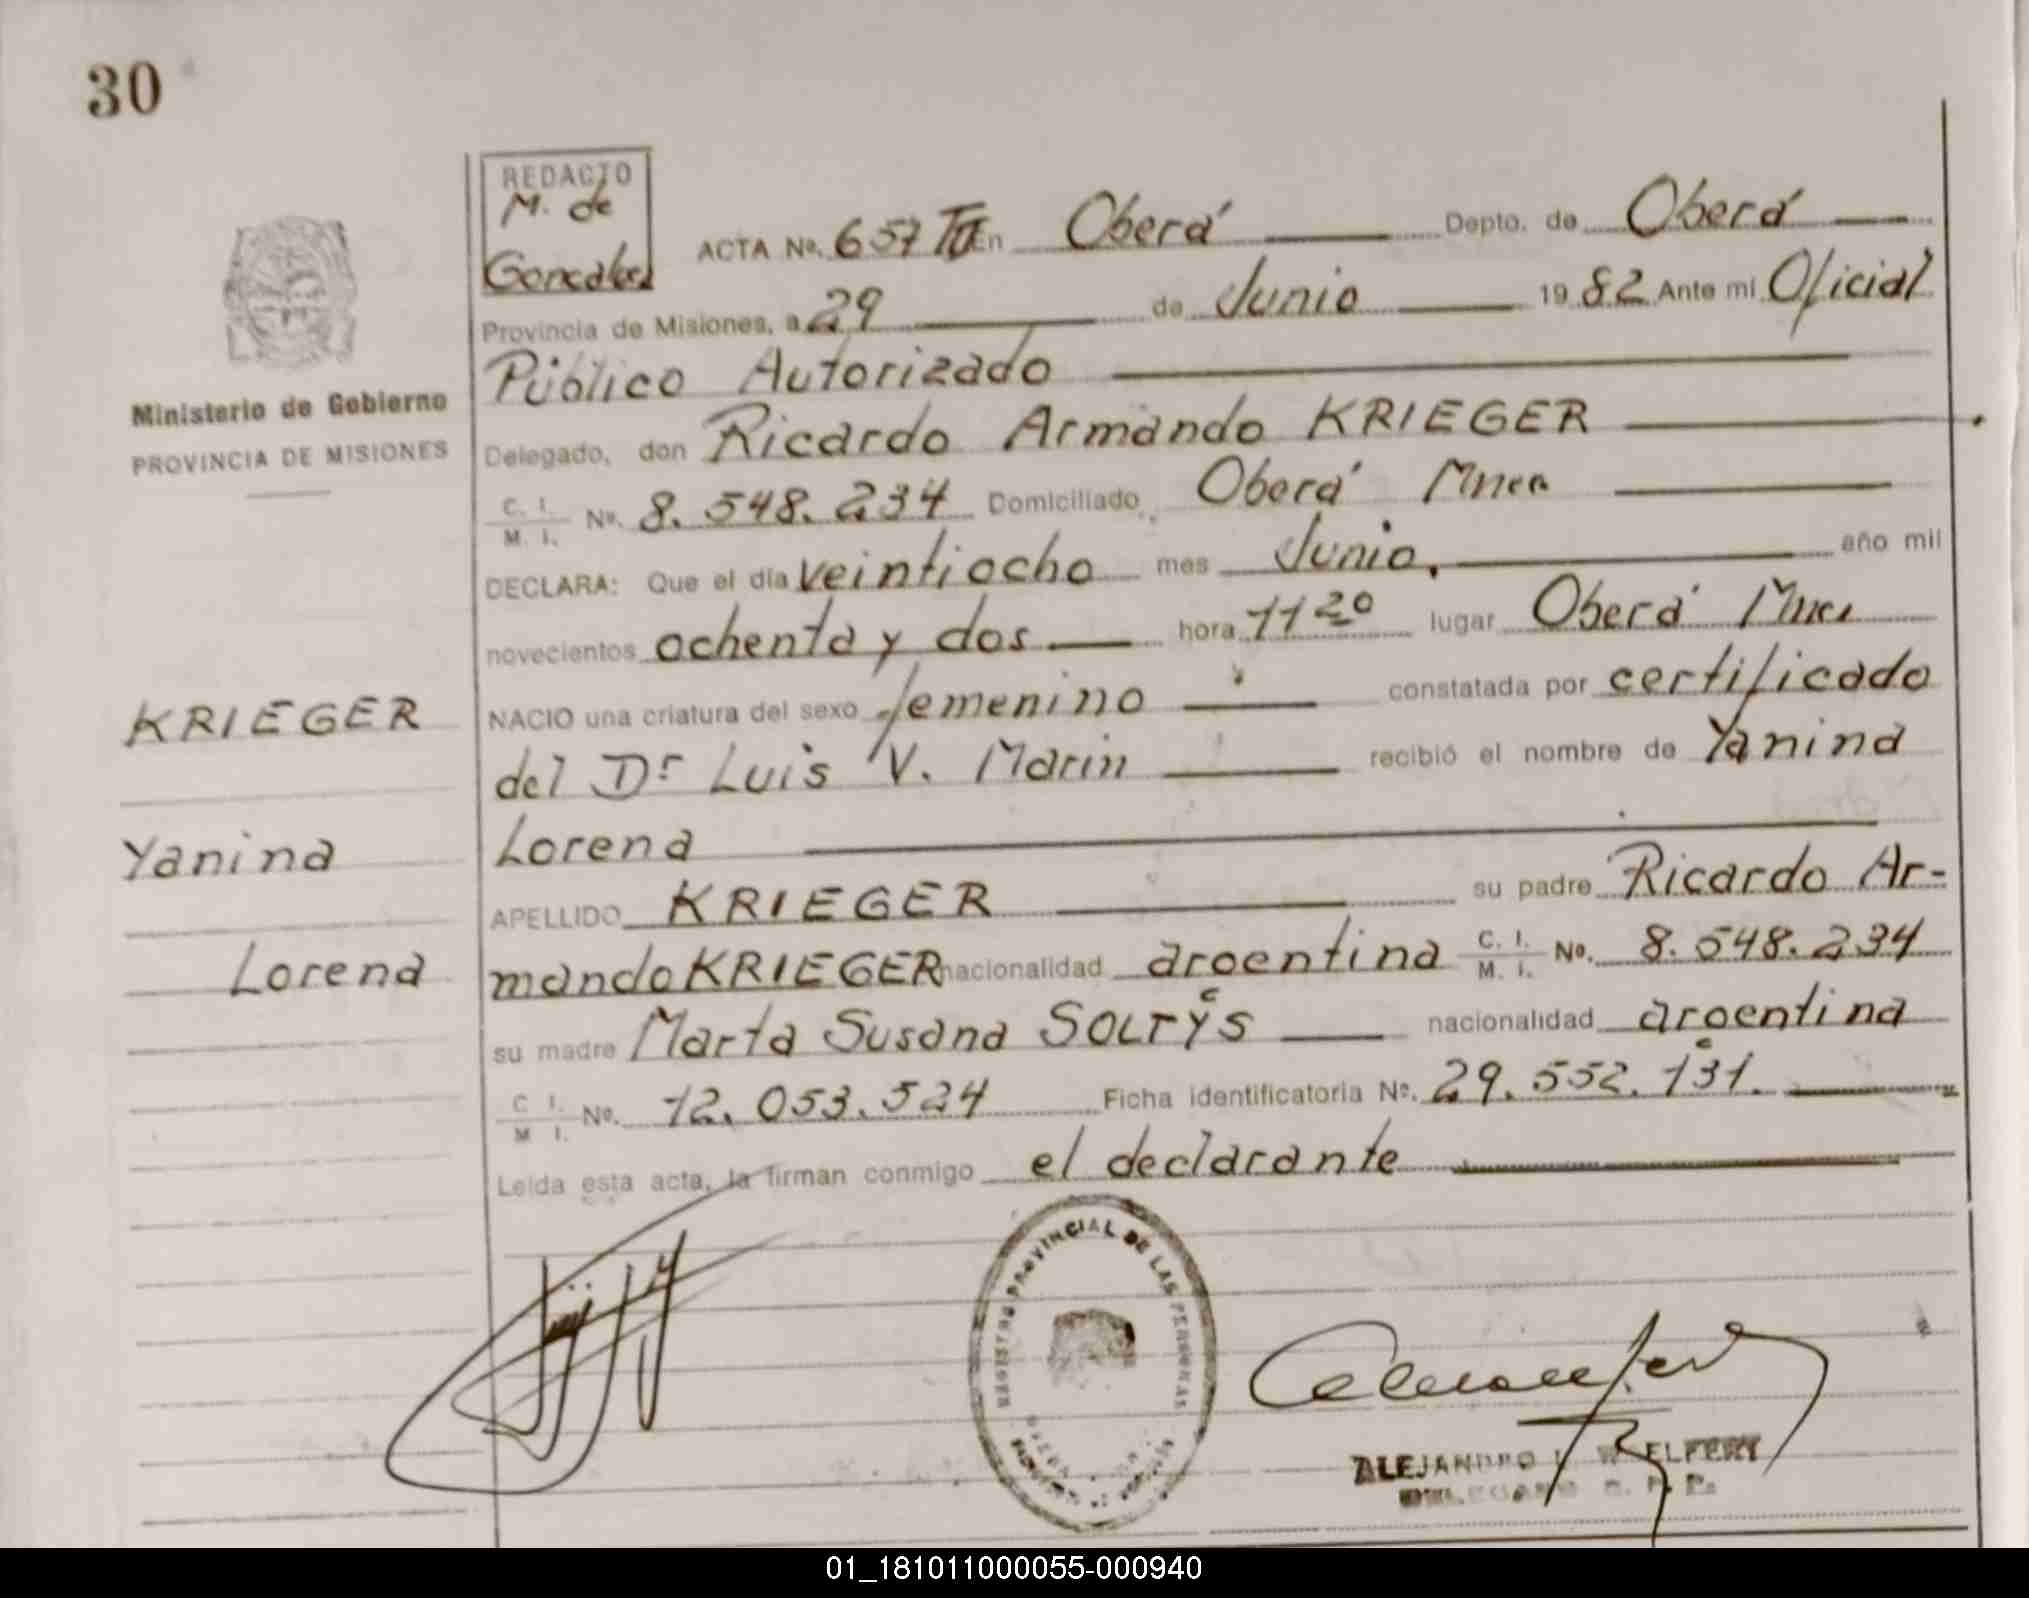 30
REDACTO
M. de
Gonzalez
ACTA No. 657 TII En Oberá Depto. de Oberá
Provincia de Misiones, a 29 de Junio 1982 Ante mi Oficial
Público Autorizado
Ministerio de Gobierno
PROVINCIA DE MISIONES
Delegado, don Ricardo Armando KRIEGER
C. I.
M. I. No. 8.548.234 Domiciliado, Oberá Mnes
DECLARA: Que el día veintiocho mes Junio, año mil
novecientos ochenta y dos hora 11 20 lugar Oberá Mnes
KRIEGER
NACIO una criatura del sexo femenino constatada por certificado
del Dr Luis V. Marin recibió el nombre de Yanina
Yanina
Lorena
APELLIDO KRIEGER su padre Ricardo Ar-
Lorena
mando KRIEGER nacionalidad argentina C. I.
M. I. No. 8.548.234
su madre Marta Susana SOLTYS nacionalidad argentina
C. I.
M. I. No. 12.053.524 Ficha identificatoria No. 29.552.131.
Leida esta acta, la firman conmigo el declarante
REGISTRO PROVINCIAL DE LAS PERSONAS
ALEJANDRO
01_181011000055-000940